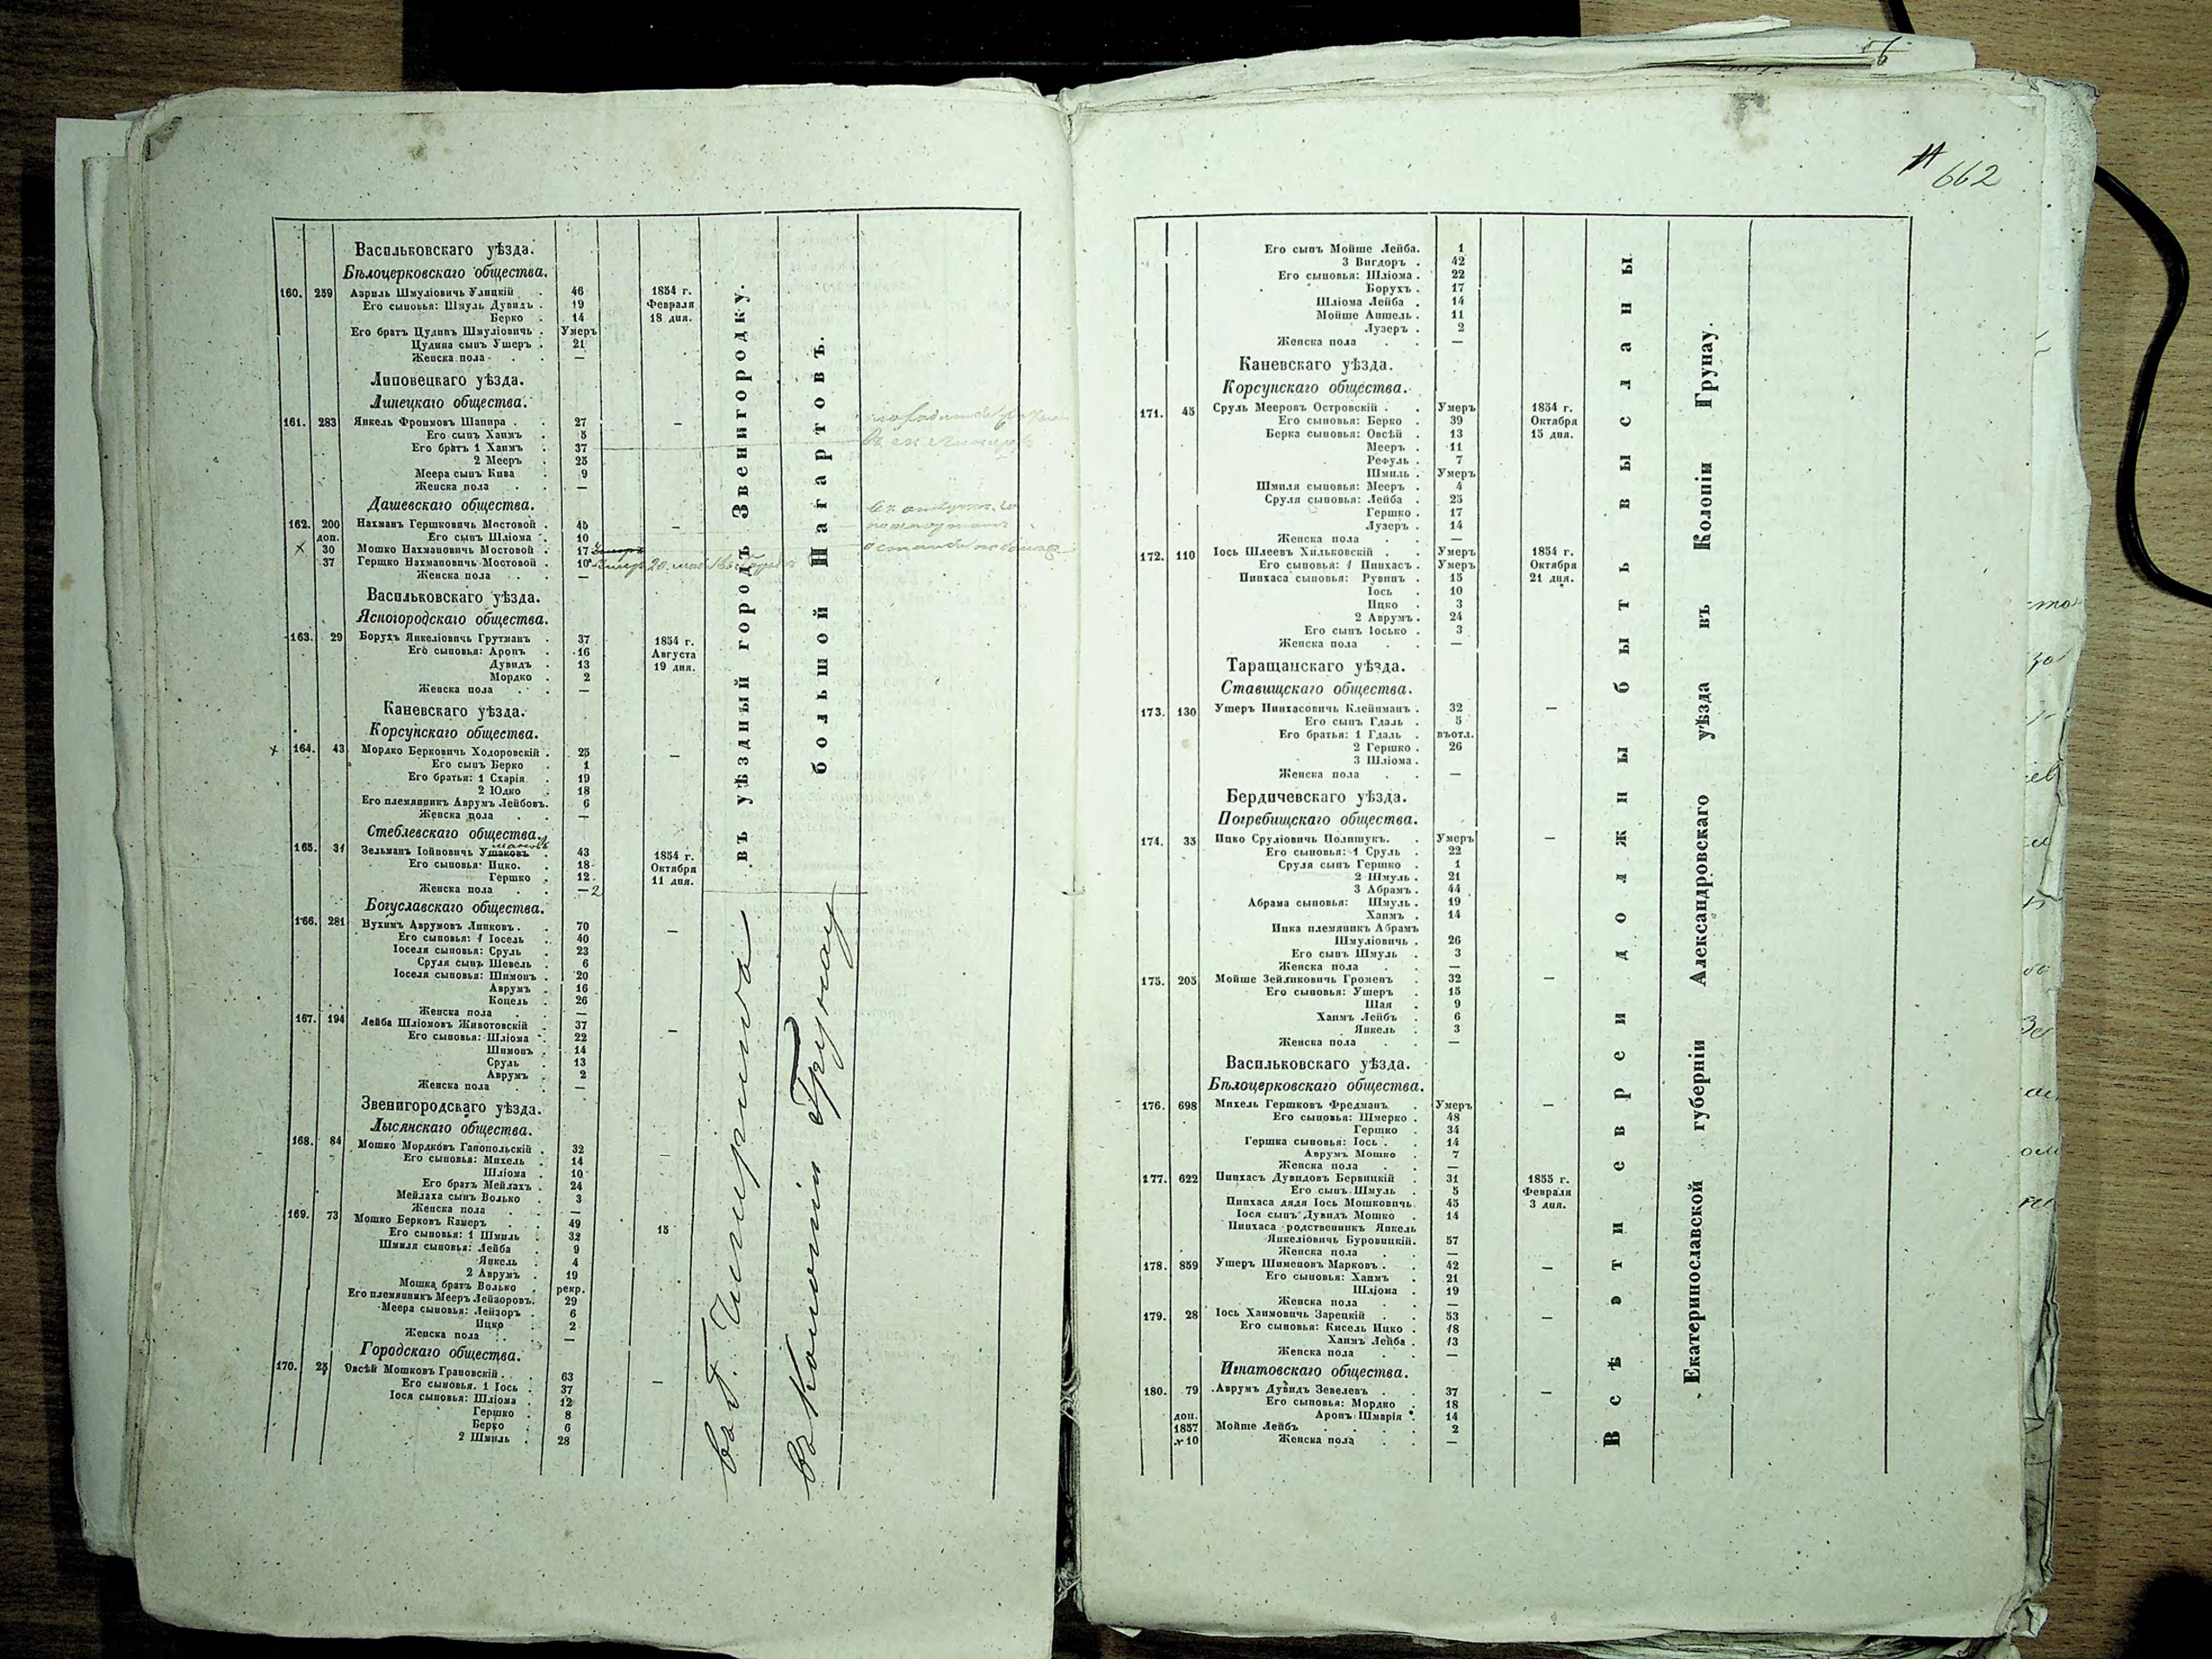 Васильковскаго уѣзда.
Бѣлоцерковскаго общества.
160. 259 Азриль Шмуліовичь Улицкій . 46 1854 г.
Его сыновья: Шмуль Дувидъ . 19 Февраля
Берко . 14 18 дня.
Его братъ Цудикъ Шмуліовичь . Умеръ
Цудика сынъ Ушеръ . 21
Женска пола . . —
Липовецкаго уѣзда.
Липецкаго общества.
161. 283 Янкель Фроимовъ Шапира . . 27 —
Его сынъ Хаимъ . 5
Его братъ 1 Хаимъ . 37
2 Мееръ . 25
Меера сынъ Кива . 9
Женска пола . . —
Дашевскаго общества.
162. 200 Нахманъ Гершковичь Мостовой . 45 —
доп. Его сынъ Шліома . 10
× 30 Мошко Нахмановичь Мостовой . 17
37 Гершко Нахмановичь Мостовой . 10
Женска пола . . —
Васильковскаго уѣзда.
Ясногородскаго общества.
163. 29 Борухъ Янкеліовичь Грутманъ . 37 1854 г.
Его сыновья: Аронъ . 16 Августа
Дувидъ . 13 19 дня.
Мордко . 2
Женска пола . . —
Каневскаго уѣзда.
Корсунскаго общества.
× 164. 43 Мордко Берковичь Ходоровскій . 25 —
Его сынъ Берко . 1
Его братья: 1 Схарія . 19
2 Юдко . 18
Его племянникъ Аврумъ Лейбовъ. 6
Женска пола . . —
Стеблевскаго общества.
165. 31 Зельманъ Іойновичь Ушаковъ . 43 1854 г.
Его сыновья: Ицко. 18 Октября
Гершко . 12 11 дня.
Женска пола . . — 2
Богуславскаго общества.
166. 281 Нухимъ Аврумовъ Липковъ . . 70 —
Его сыновья: 1 Іосель . 40
Іоселя сыновья: Сруль . 23
Сруля сынъ Шевель . 6
Іоселя сыновья: Шимонъ . 20
Аврумъ . 16
Коцель . 26
Женска пола . . —
167. 194 Лейба Шліомовъ Животовскій . 37 —
Его сыновья: Шліома . 22
Шимонъ . 14
Сруль . 13
Аврумъ . 2
Женска пола . —
Звенигородскаго уѣзда.
Лысянскаго общества.
168. 84 Мошко Мордковъ Ганопольскій . 32 —
Его сыновья: Михель . 14
Шліома . 10
Его братъ Мейлахъ . 24
Мейлаха сынъ Волько . 3
Женска пола . . —
169. 73 Мошко Берковъ Камеръ . . 49 15
Его сыновья: 1 Шмиль . 32
Шмиля сыновья: Лейба . 9
Янкель . 4
2 Аврумъ . 19
Мошка братъ Волько . рекр.
Его племянникъ Мееръ Лейзоровъ. 29
Меера сыновья: Лейзоръ . 6
Ицко . 2
Женска пола . . —
Городскаго общества.
170. 25 Овсѣй Мошковъ Грановскій . . 63 —
Его сыновья. 1 Іось . 37
Іося сыновья: Шліома . 12
Гершко . 8
Берко . 6
2 Шмиль . 28
въ уѣздный городъ Звенигородку.
большой Нагартовъ.
въ г. Чигиринъ
въ Колонію Грунау
662
Его сынъ Мойше Лейба. 1
3 Вигдоръ . 42
Его сыновья: Шліома . 22
Борухъ . 17
Шліома Лейба . 14
Мойше Аншель . 11
Лузеръ . 2
Женска пола . . —
Каневскаго уѣзда.
Корсунскаго общества.
171. 45 Сруль Мееровъ Островскій . . Умеръ 1854 г.
Его сыновья: Берко . 39 Октября
Берка сыновья: Овсѣй . 13 15 дня.
Мееръ . 11
Рефуль . 7
Шмиль . Умеръ
Шмиля сыновья: Мееръ . 4
Сруля сыновья: Лейба . 25
Гершко . 17
Лузеръ . 14
Женска пола . . —
172. 110 Іось Шлеевъ Хильковскій . . Умеръ 1854 г.
Его сыновья: 1 Пинхасъ . Умеръ Октября
Пинхаса сыновья: Рувинъ . 15 21 дня.
Іось . 10
Ицко . 3
2 Аврумъ . 24
Его сынъ Іосько . 3
Женска пола . . —
Таращанскаго уѣзда.
Ставищскаго общества.
173. 130 Ушеръ Пинхасовичь Клейнманъ . 32 —
Его сынъ Гдаль . 5
Его братья: 1 Гдаль . въотл.
2 Гершко . 26
3 Шліома .
Женска пола . . —
Бердичевскаго уѣзда.
Погребищскаго общества.
174. 35 Ицко Сруліовичь Полищукъ. . Умеръ —
Его сыновья: 1 Сруль . 22
Сруля сынъ Гершко . 1
2 Шмуль . 21
3 Абрамъ . 44
Абрама сыновья: Шмуль . 19
Хаимъ . 14
Ицка племянникъ Абрамъ
Шмуліовичь . 26
Его сынъ Шмуль . 3
Женска пола . . —
175. 205 Мойше Зейликовичь Громенъ . 32 —
Его сыновья: Ушеръ . 15
Шая . 9
Хаимъ Лейбъ . 6
Янкель . 3
Женска пола . . —
Васильковскаго уѣзда.
Бѣлоцерковскаго общества.
176. 698 Михель Гершковъ Фредманъ . Умеръ —
Его сыновья: Шмерко . 48
Гершко . 34
Гершка сыновья: Іось . . 14
Аврумъ Мошко . 7
Женска пола . . —
177. 622 Пинхасъ Дувидовъ Бервицкій . 31 1855 г.
Его сынъ Шмуль . 5 Февраля
Пинхаса дядя Іось Мошковичь. 45 3 дня.
Іося сынъ Дувидъ Мошко 14
Пинхаса родственникъ Янкель
Янкеліовичь Буровицкій. 57
Женска пола . . —
178. 859 Ушеръ Шименовъ Марковъ . . 42 —
Его сыновья: Хаимъ . 21
Шліома . 19
Женска пола . . —
179. 28 Іось Хаимовичь Зарецкій . 53 —
Его сыновья: Кисель Ицко . 18
Хаимъ Лейба . 13
Женска пола . . —
Игнатовскаго общества.
180. 79 Аврумъ Дувидъ Зевелевъ . . 37 —
Его сыновья: Мордко . 18
доп. Аронъ Шмарія . 14
1857 Мойше Лейбъ . . . . 2
№ 10 Женска пола . . —
Всѣ эти евреи должны быть высланы
Екатеринославской губерніи Александровскаго уѣзда въ Колоніи Грунау.